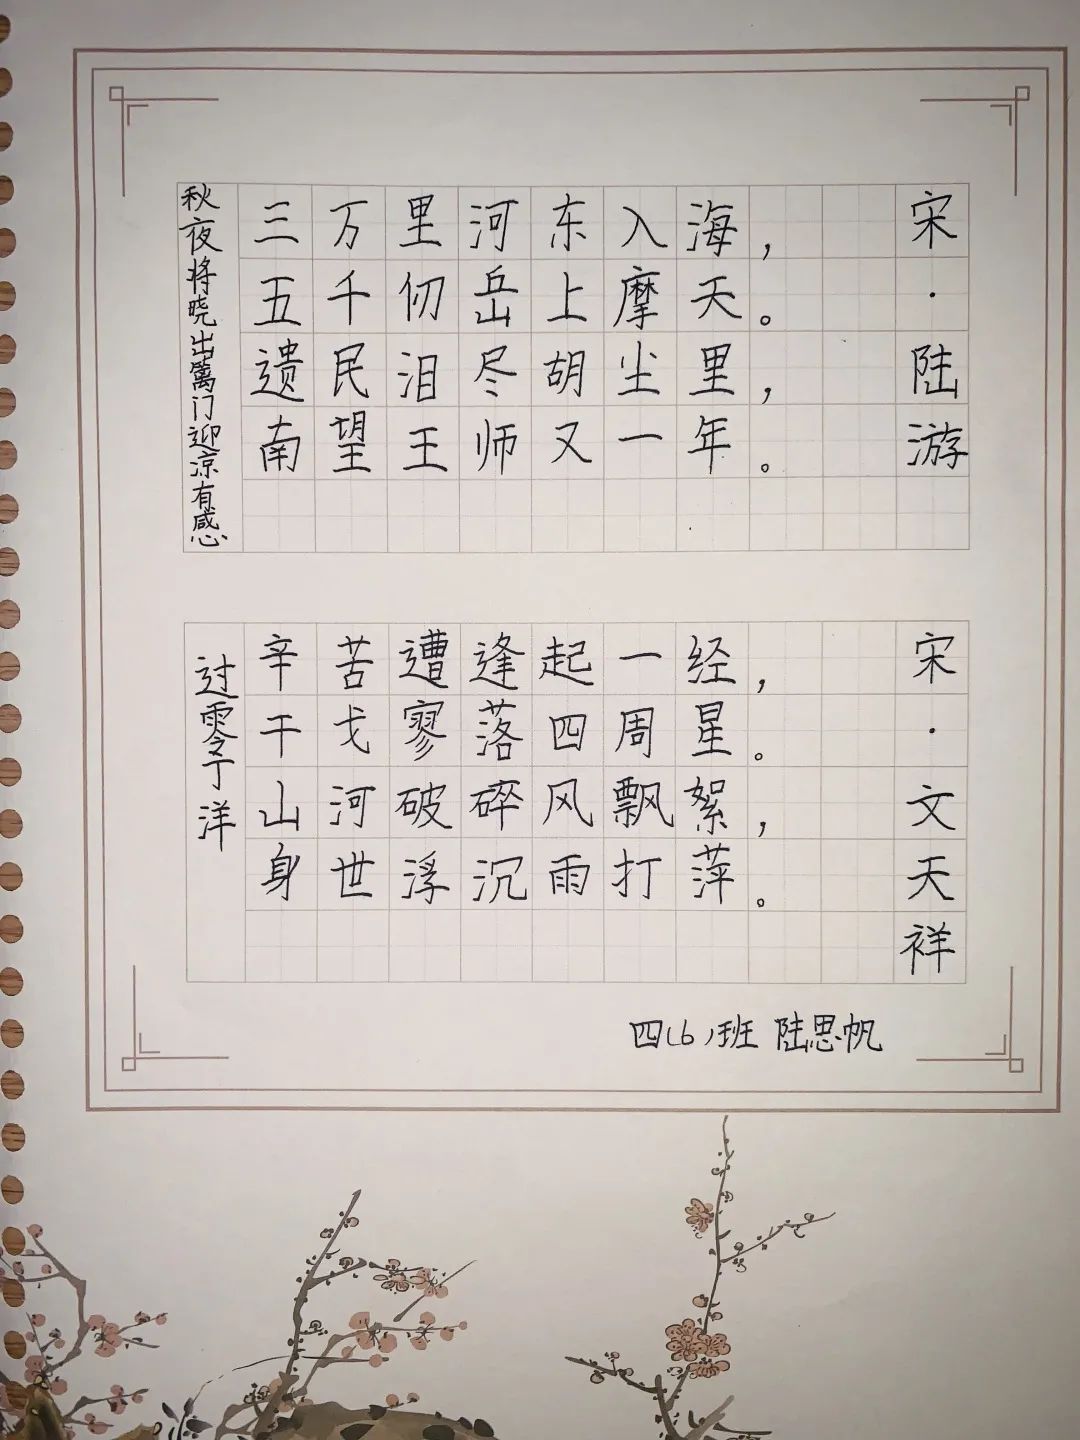 秋夜将晓出篱门迎凉有感
三万里河东入海，
五千仞岳上摩天。
遗民泪尽胡尘里，
南望王师又一年。
宋·陆游
过零丁洋
辛苦遭逢起一经，
干戈寥落四周星。
山河破碎风飘絮，
身世浮沉雨打萍。
宋·文天祥
四(6)班 陆思帆